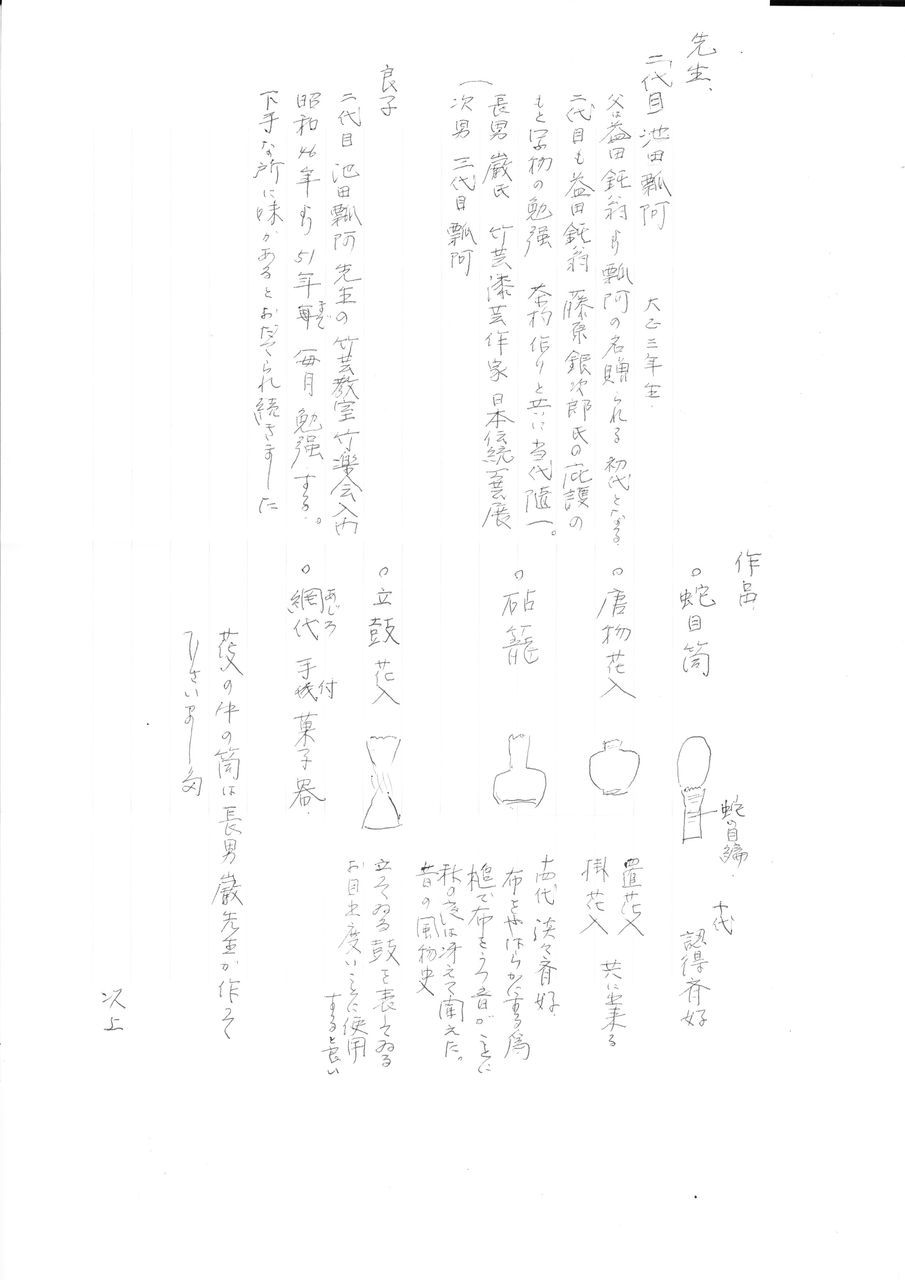 先生、
二代目 池田瓢阿 大正三年生.
父は益田鈍翁より瓢阿の名贈られる 初代となる.
二代目も益田鈍翁 藤原銀次郎氏の庇護の
もと写物の勉強 茶杓作りと共に当代随一。
長男 巌氏 竹芸漆芸作家 日本伝統工芸展
(次男 三代目瓢阿
良子
二代目 池田瓢阿先生の竹芸教室 竹楽会入門
昭和46年より51年まで 毎月勉強する。
下手な所に味があるとおだてられ続きました
作品.
○蛇目筒
蛇の目編.
十代 認得斉好
○唐物花入
置花入
掛花入
共に出来る
○砧籠
十四代 淡々斉好
布をやはらかにする為
槌で布をうつ音がことに
秋の夜は冴えて聞えた。
昔の風物史
○立鼓花入
立てゐる鼓を表してゐる
お目出度いことに使用
すると良い
○網代 手付 菓子器.
あじろ
花入の中の筒は長男巌先生が作って
下さいました
以上